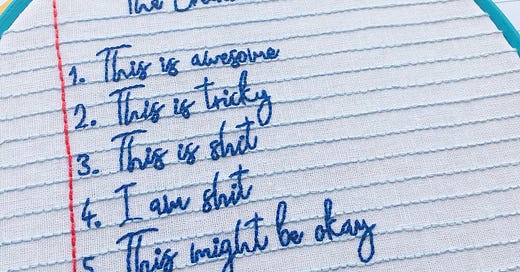 The
1. This is awesome
2. This is tricky
3. This is shit
4. I am shit
5. This might be okay